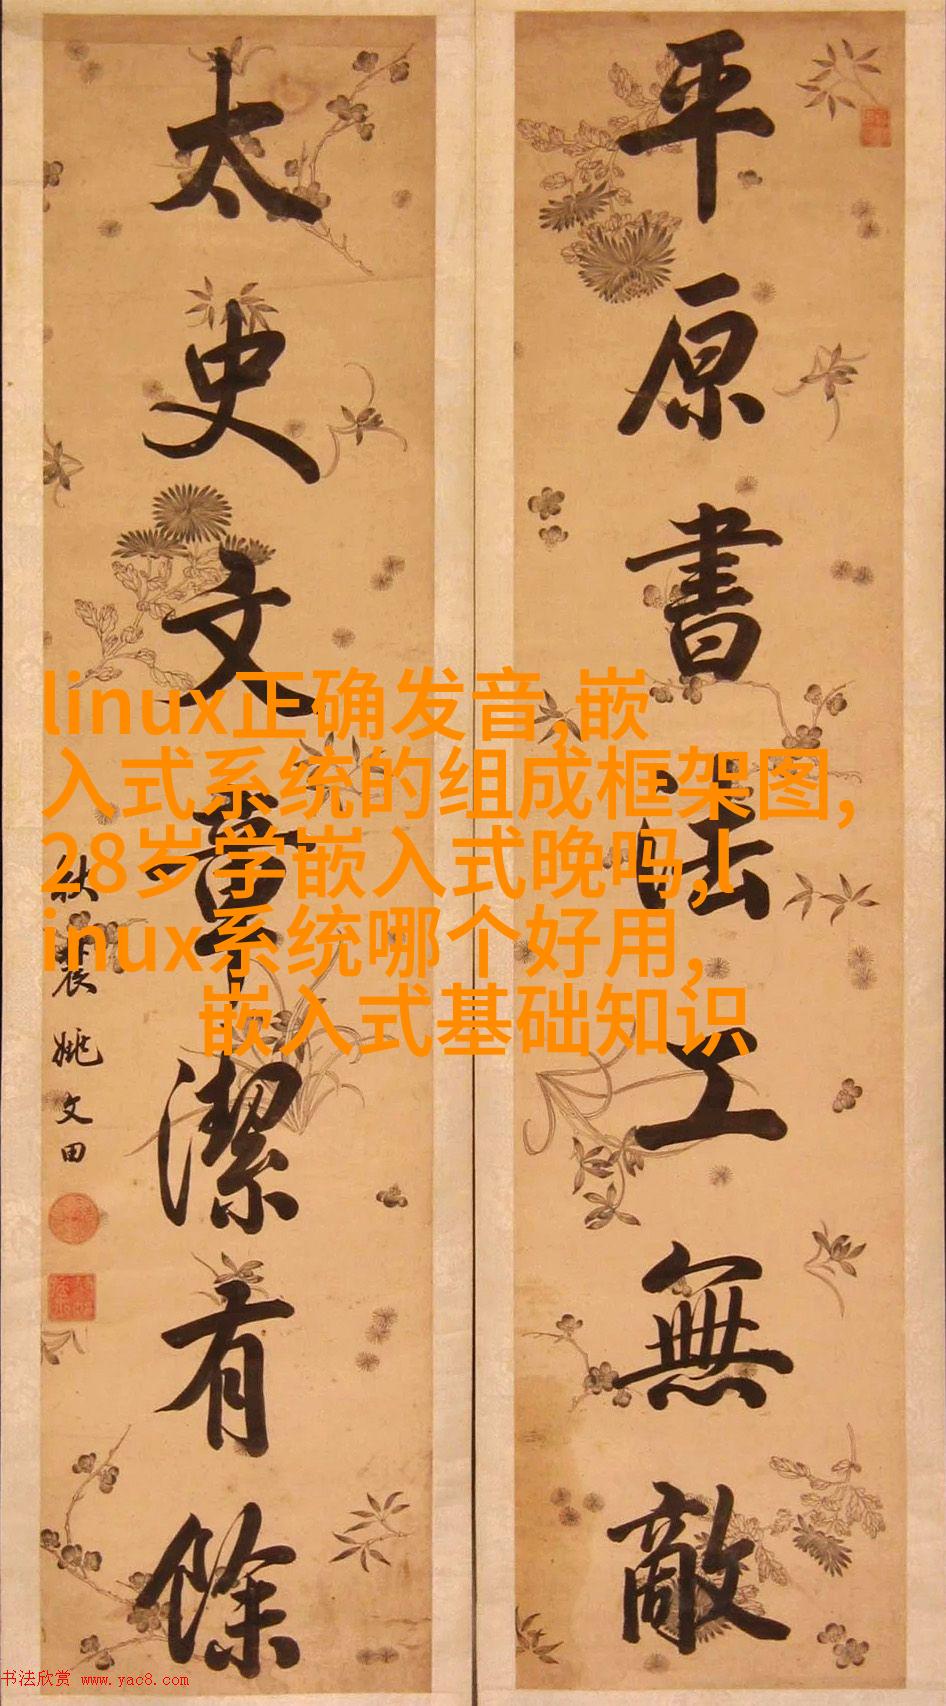 平原書法工無敵
太史文章潔有餘
秋農姚文田
linux正确发音,嵌
入式系统的组成框架图,
28岁学嵌入式晚吗,l
inux系统哪个好用,
嵌入式基础知识
书法欣赏 www.yac8.com